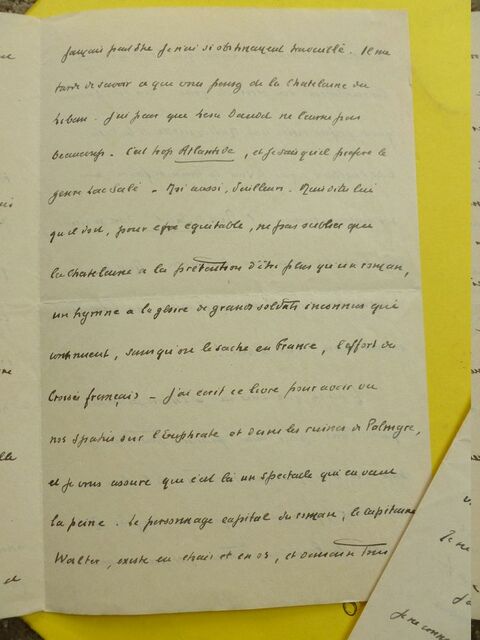 français peut être je n'ai si obstinément travaillé. Il me
tarde de savoir ce que vous pensez de la Chatelaine du
Liban. J'ai peur que Daudet ne l'aime pas
beaucoup. C'est trop Atlantide, et je sais qu'il préfère le
genre Lac Salé – Moi aussi, d'ailleurs. Mais dites lui
qu'il doit, pour être équitable, ne pas oublier que
la Chatelaine a la prétention d'être plus qu'un roman,
un hymne à la gloire de grands soldats inconnus qui
continuent, sans qu'on le sache en France, l'effort des
Croisés français – J'ai écrit ce livre pour avoir vu
nos spahis sur l'Euphrate et dans les ruines de Palmyre,
et je vous assure que c'est là un spectacle qui en vaut
la peine. Le personnage capital du roman, le capitaine
Walter, existe en chair et en os, et
Je ne